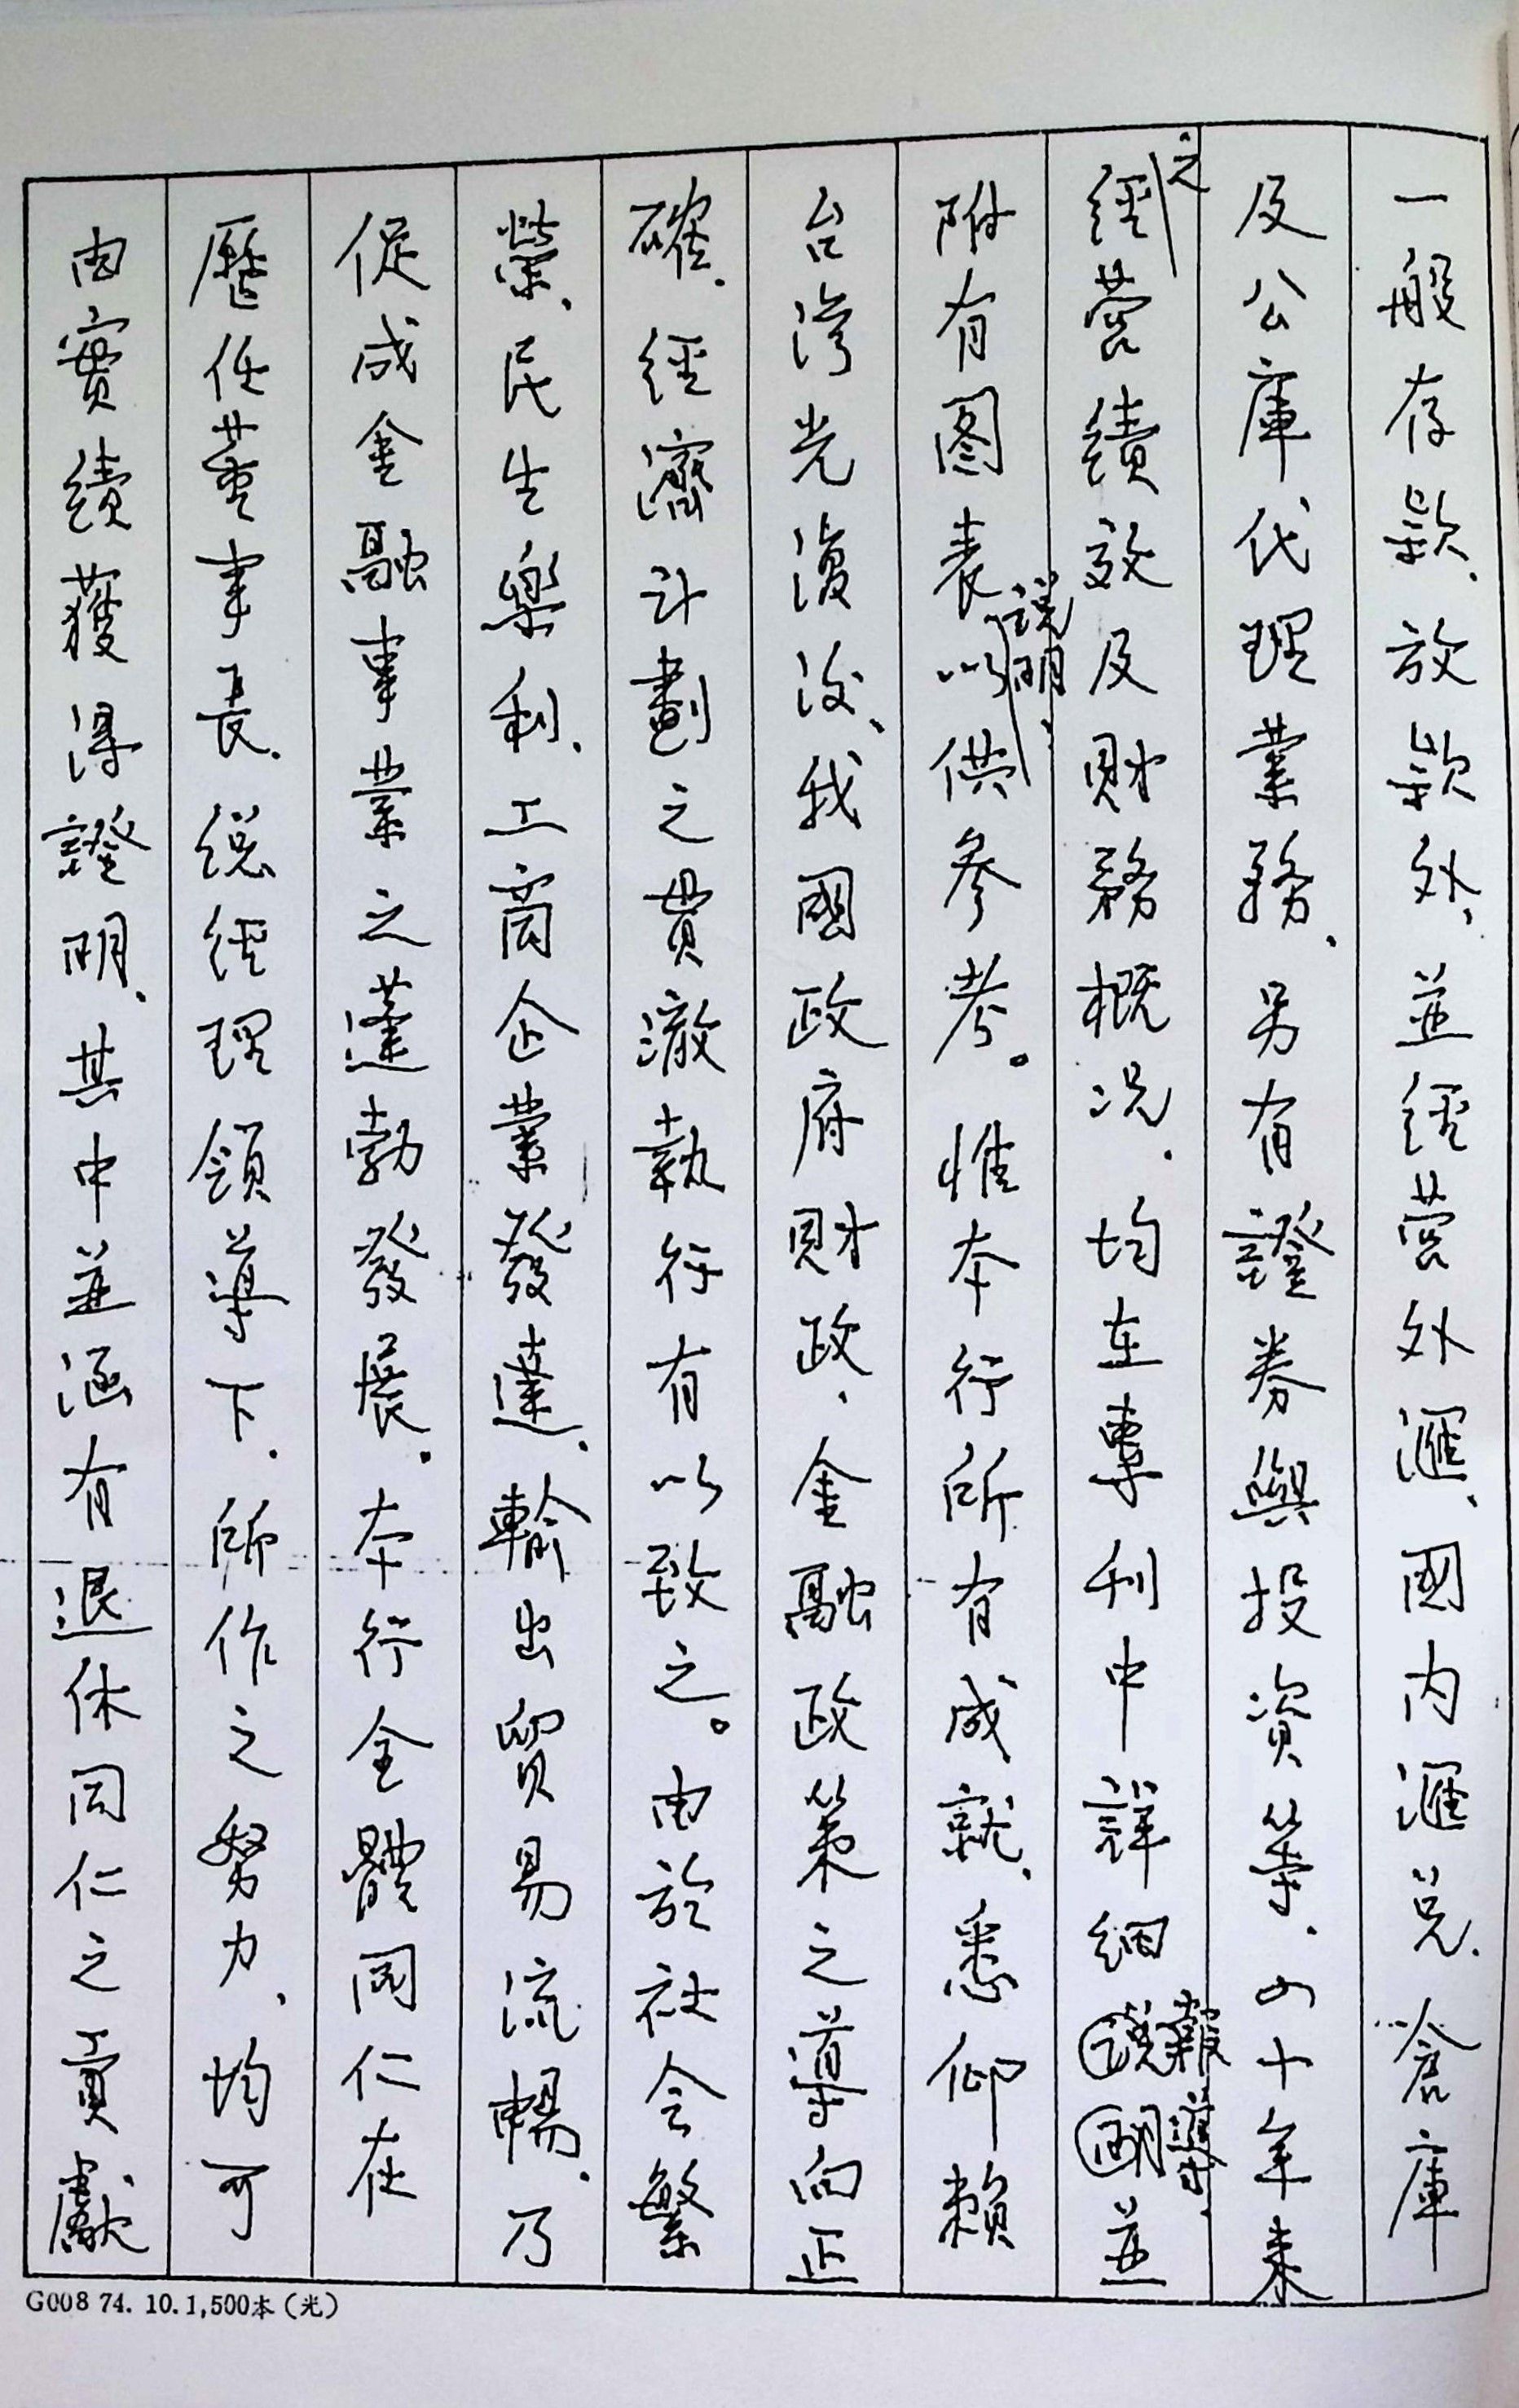 一般存款、放款外、並經營外滙、國內滙兌、倉庫
及公庫代理業務、另有證券與投資等、四十年來
之
經營績效及財務概況、均在專刊中詳細說明並
報導、
附有圖表以供參考。惟本行所有成就、悉仰賴
說明、
台灣光復後、我國政府財政、金融政策之導向正
確、經濟計劃之貫澈執行有以致之。由於社会繁
榮、民生樂利、工商企業發達、輸出貿易流暢、乃
促成金融事業之蓬勃發展。本行全體同仁在
歷任董事長、総經理領導下、所作之努力、均可
由實績獲得證明、其中並涵有退休同仁之貢獻
G008 74. 10. 1,500本（光）